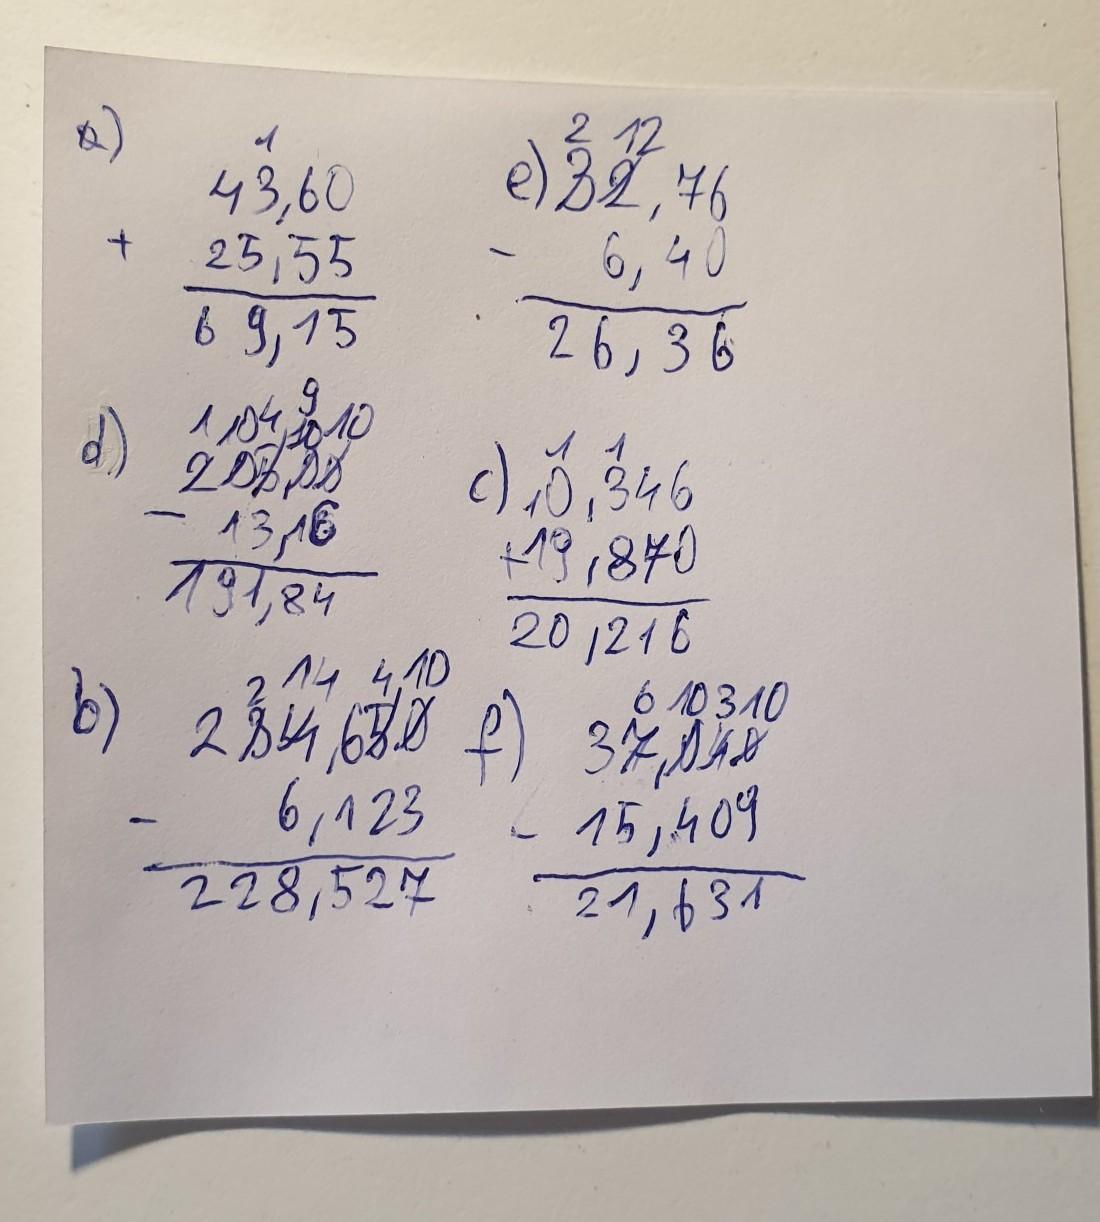 a)
1
43,60
+ 25,55
69,15
e)
2 12
32,76
- 6,40
26,36
d)
9
1 10 4, 10 10
205,00
- 13,16
191,84
c)
1 1
0,346
+19,870
20,216
b)
2 14 4 10
234,650
- 6,123
228,527
f)
6 10 3 10
37,040
- 15,409
21,631